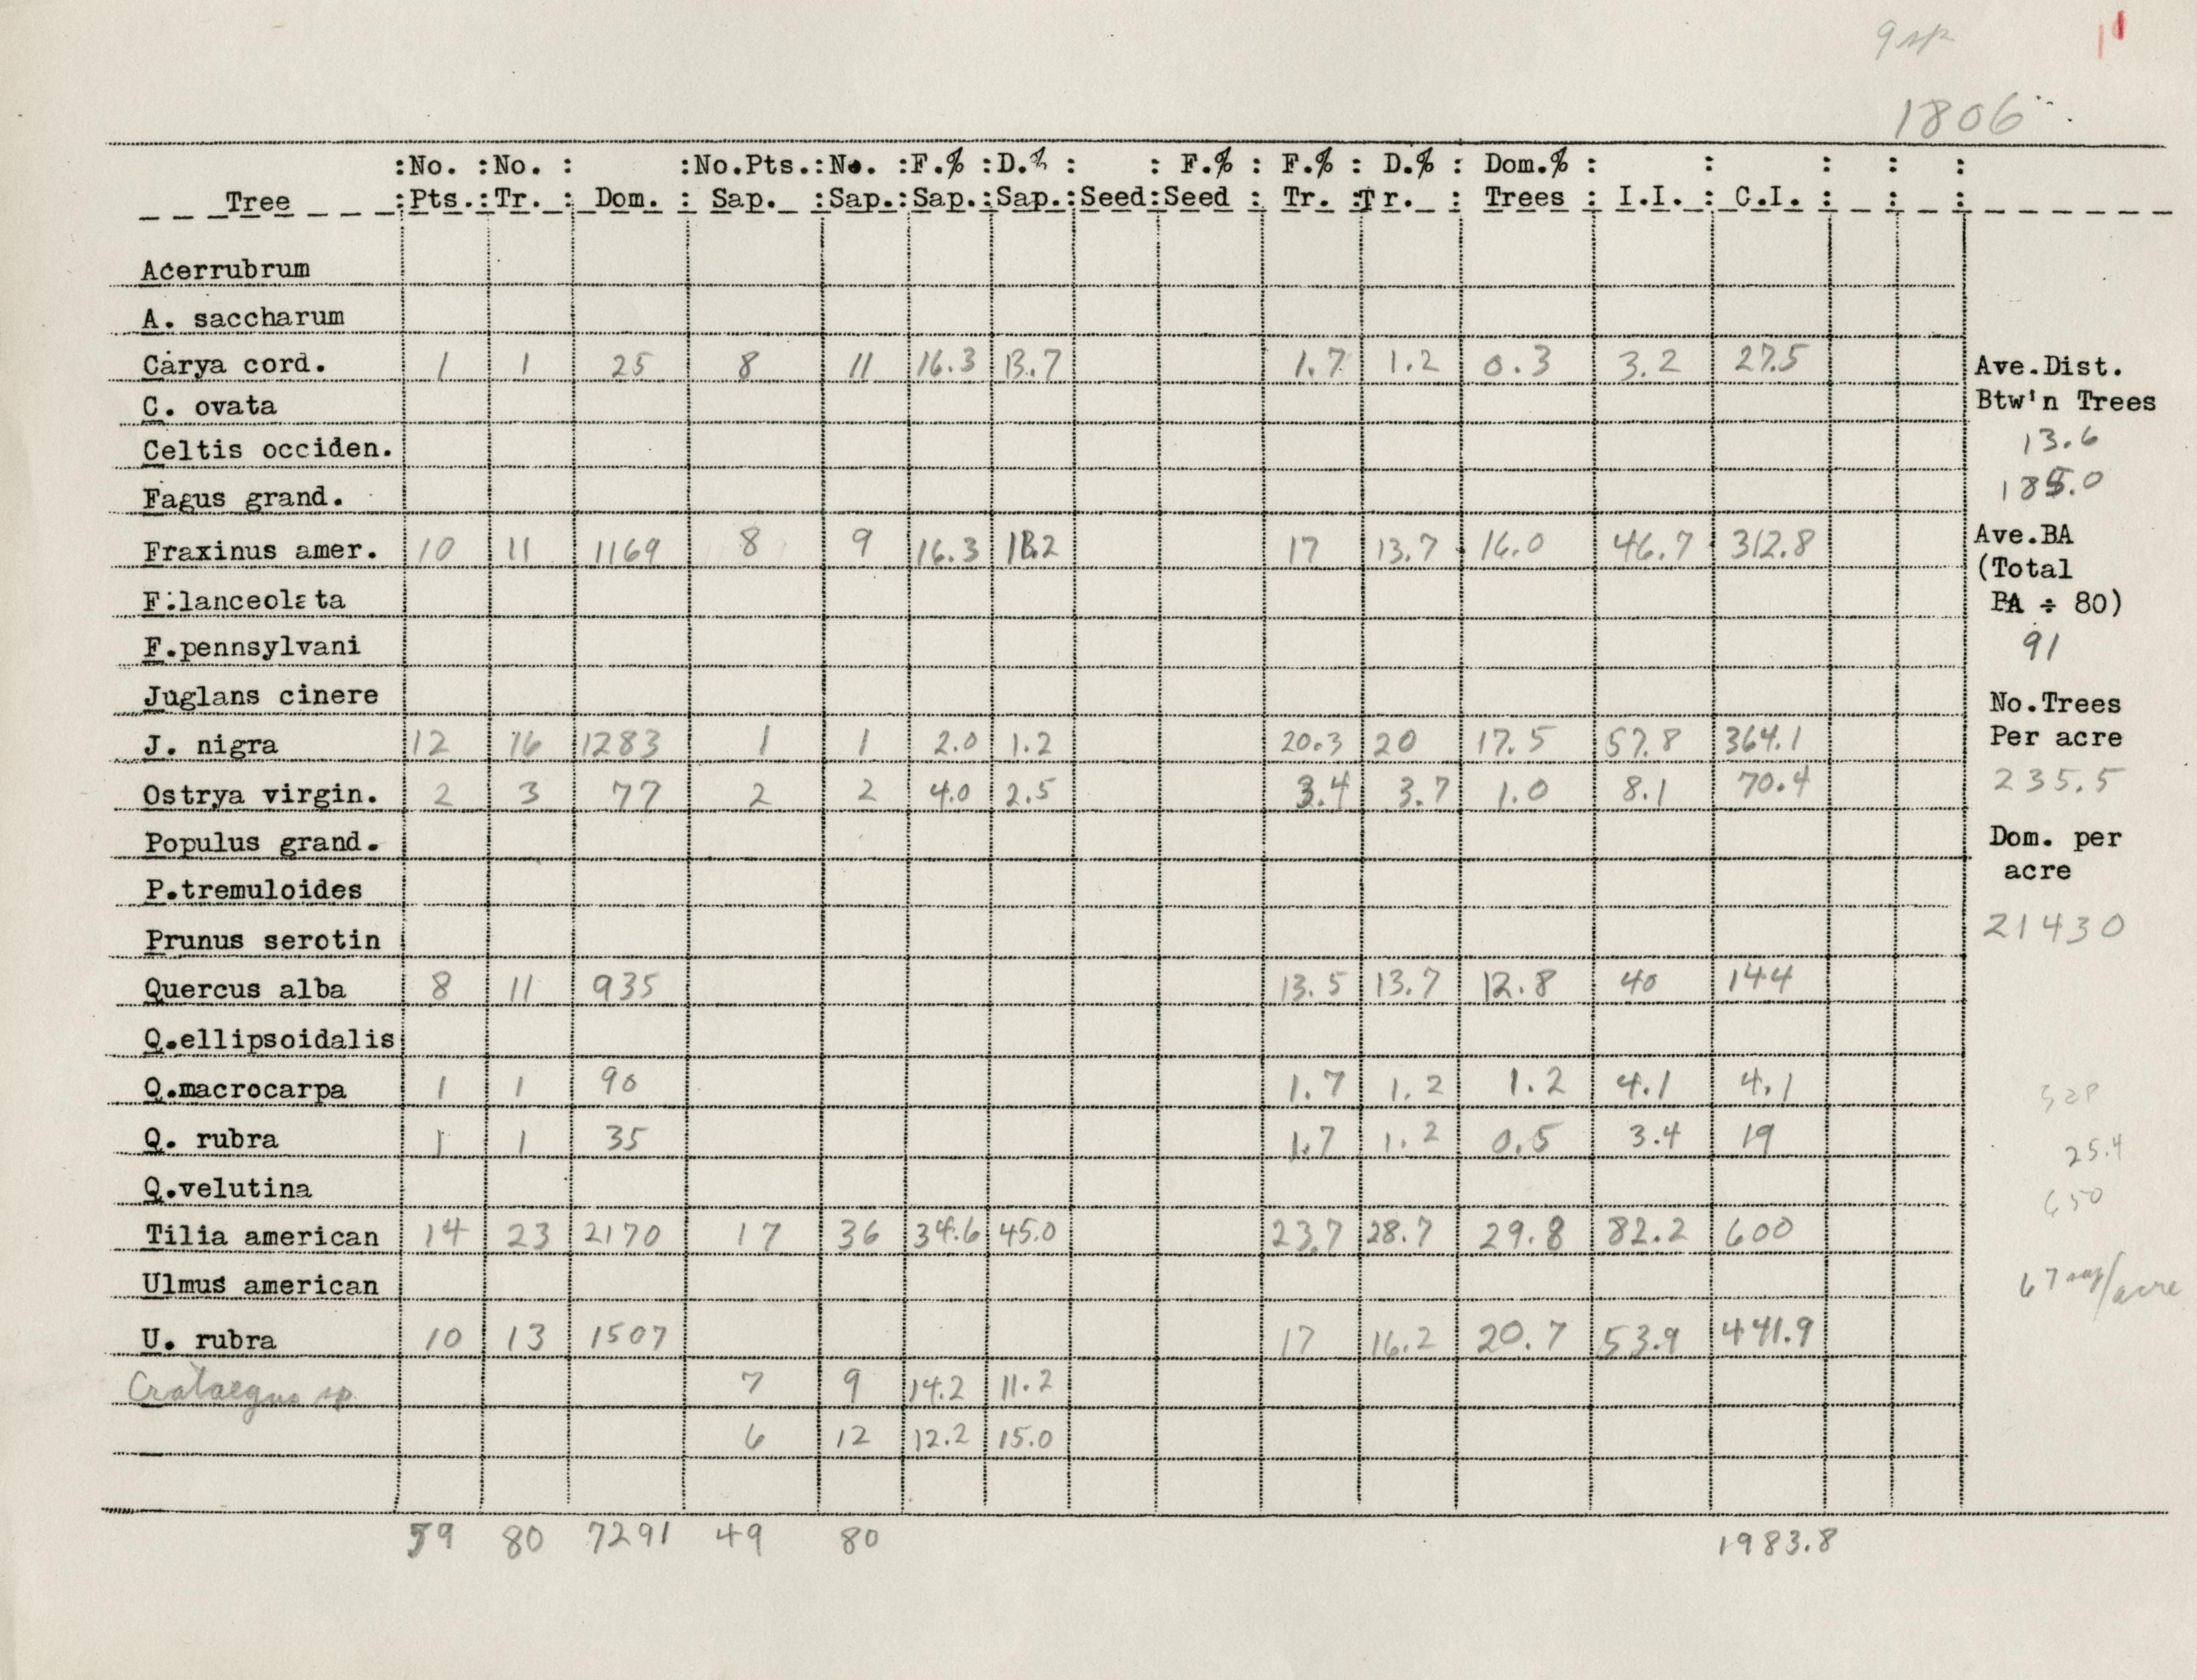 9 sp
1806
:No. :No. : :No.Pts.:No. :F.% :D.% : : F.% : F.% : D.% : Dom.% : : : : :
Tree :Pts.:Tr. : Dom. : Sap. :Sap.:Sap.:Sap.:Seed:Seed : Tr. :Tr. : Trees : I.I. : C.I. : : :
Acerrubrum
A. saccharum
Carya cord. 1 1 25 8 11 16.3 13.7 1.7 1.2 0.3 3.2 27.5
C. ovata
Celtis occiden.
Fagus grand.
Fraxinus amer. 10 11 1169 8 9 16.3 11.2 17 13.7 16.0 46.7 312.8
F.lanceolata
F.pennsylvani
Juglans cinere
J. nigra 12 16 1283 1 1 2.0 1.2 20.3 20 17.5 57.8 364.1
Ostrya virgin. 2 3 77 2 2 4.0 2.5 3.4 3.7 1.0 8.1 70.4
Populus grand.
P.tremuloides
Prunus serotin
Quercus alba 8 11 935 13.5 13.7 12.8 40 144
Q.ellipsoidalis
Q.macrocarpa 1 1 90 1.7 1.2 1.2 4.1 4.1
Q. rubra 1 1 35 1.7 1.2 0.5 3.4 19
Q.velutina
Tilia american 14 23 2170 17 36 34.6 45.0 23.7 28.7 29.8 82.2 600
Ulmus american
U. rubra 10 13 1507 17 16.2 20.7 53.9 441.9
Crataegus sp. 7 9 14.2 11.2
6 12 12.2 15.0
59 80 7291 49 80 1983.8
Ave.Dist.
Btw'n Trees
13.6
185.0
Ave.BA
(Total
BA ÷ 80)
91
No.Trees
Per acre
235.5
Dom. per
acre
21430
sap
25.4
650
67 sap/acre